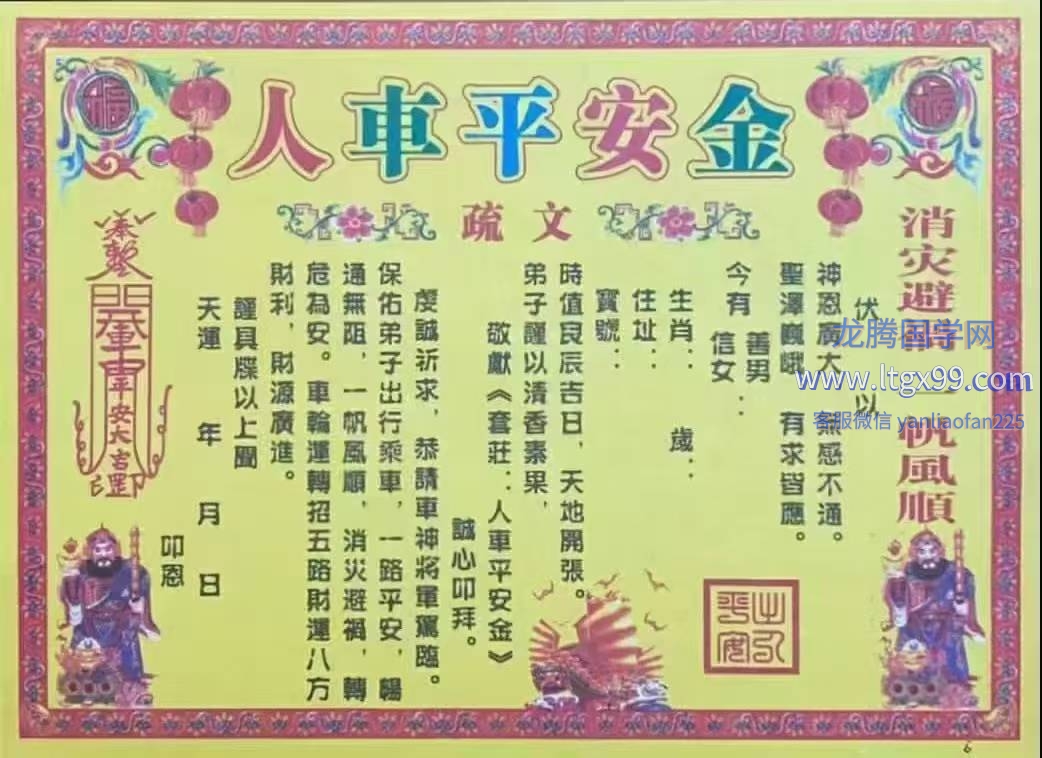 人車平安金
疏文
消灾避禍一帆風順
伏以
神恩廣大 無感不通。
聖澤巍峨 有求皆應。
今有 善男
信女：
生肖： 歲：
住址：
寶號：
時值良辰吉日，天地開張。
弟子謹以清香素果，
敬獻《套莊：人車平安金》
誠心叩拜。
虔誠祈求，恭請車神將軍駕臨。
保佑弟子出行乘車，一路平安，暢
通無阻，一帆風順，消災避禍，轉
危為安。車輪運轉招五路財運八方
財利，財源廣進。
謹具牒以上聞
天運 年 月 日
叩恩
平安大吉罡
出入平安
福
福
龙腾国学网
www.ltgx99.com
客服微信 yanliaofan225
6